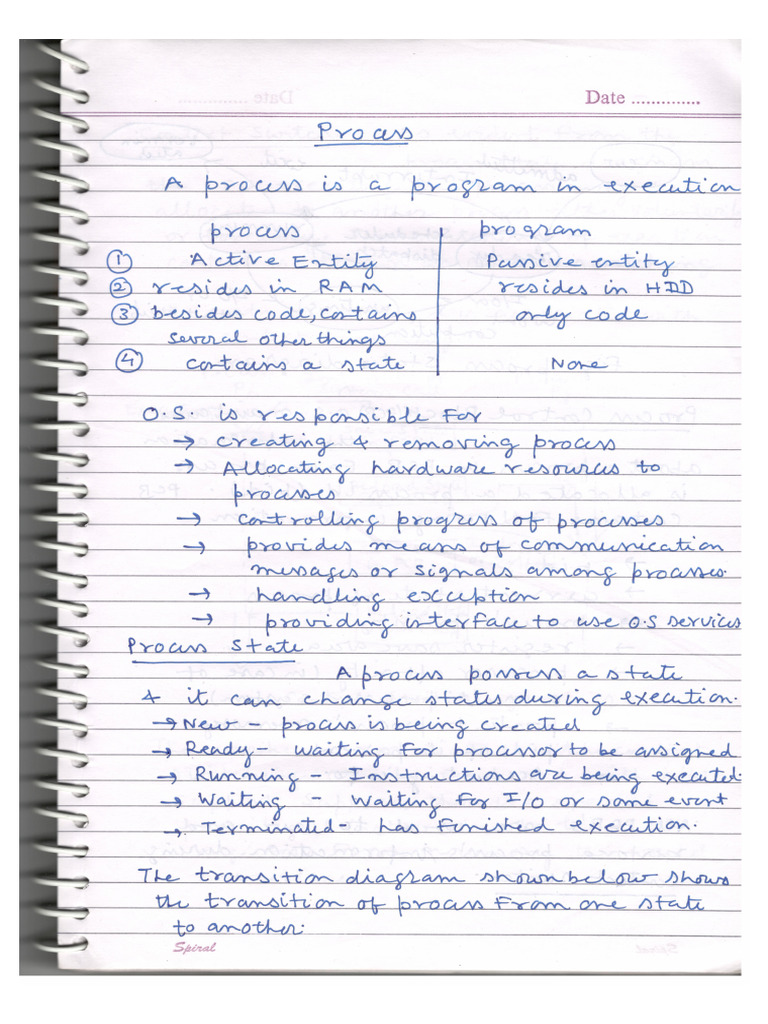 Date ..............
Process
A process is a program in execution
process program
① Active Entity Passive entity
② resides in RAM resides in HDD
③ besides code, contains only code
several other things
④ contains a state None
O.S. is responsible for
→ creating & removing process
→ Allocating hardware resources to
processes
→ controlling progress of processes
→ provides means of communication
messages or signals among processes.
→ handling exception
→ providing interface to use O.S services
Process State
A process possess a state
& it can change states during execution.
→ New - process is being created
→ Ready - waiting for processor to be assigned
→ Running - Instructions are being executed.
→ Waiting - waiting for I/O or some event
→ Terminated - has finished execution.
The transition diagram shown below shows
the transition of process from one state
to another:
Spiral